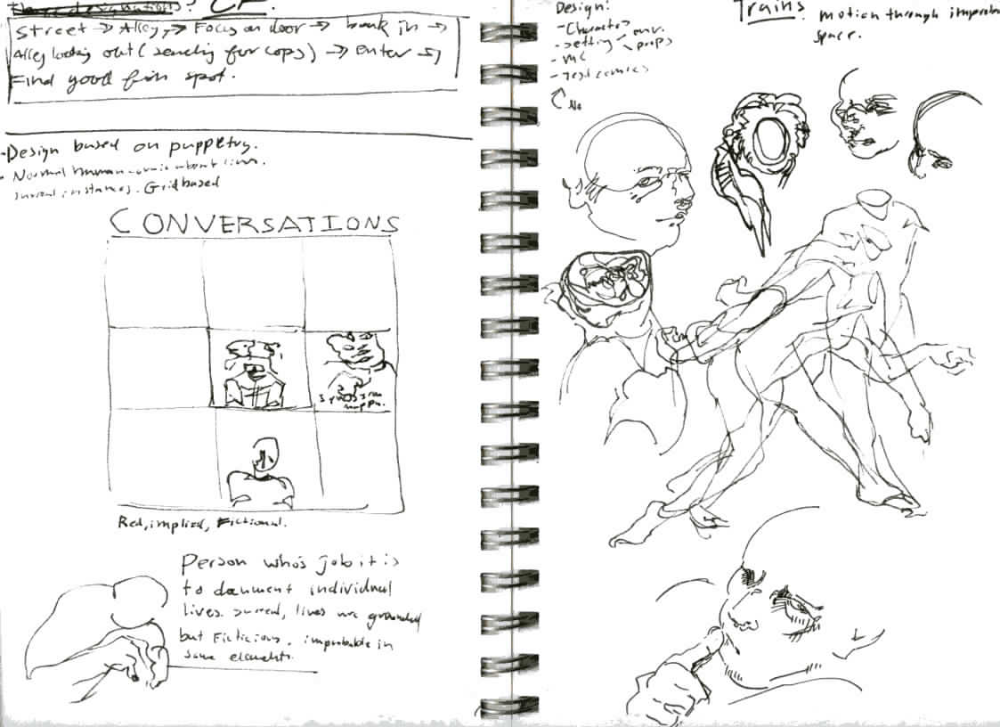 Street → Alley → Focus on door → bank in →
Alley looking out (searching for cops) → enter →
Find good fun spot.
-Design based on puppetry.
- Normal human
surreal instances. Grid based
CONVERSATIONS
implied, Fictional.
Person who's job it is
to document individual
lives. surreal, lives are grounded
but Ficticious. improbable in
some elements.
Design:
-Character
-setting env.
props
- MC
- Test comics
Trains. motion through improbable
space.